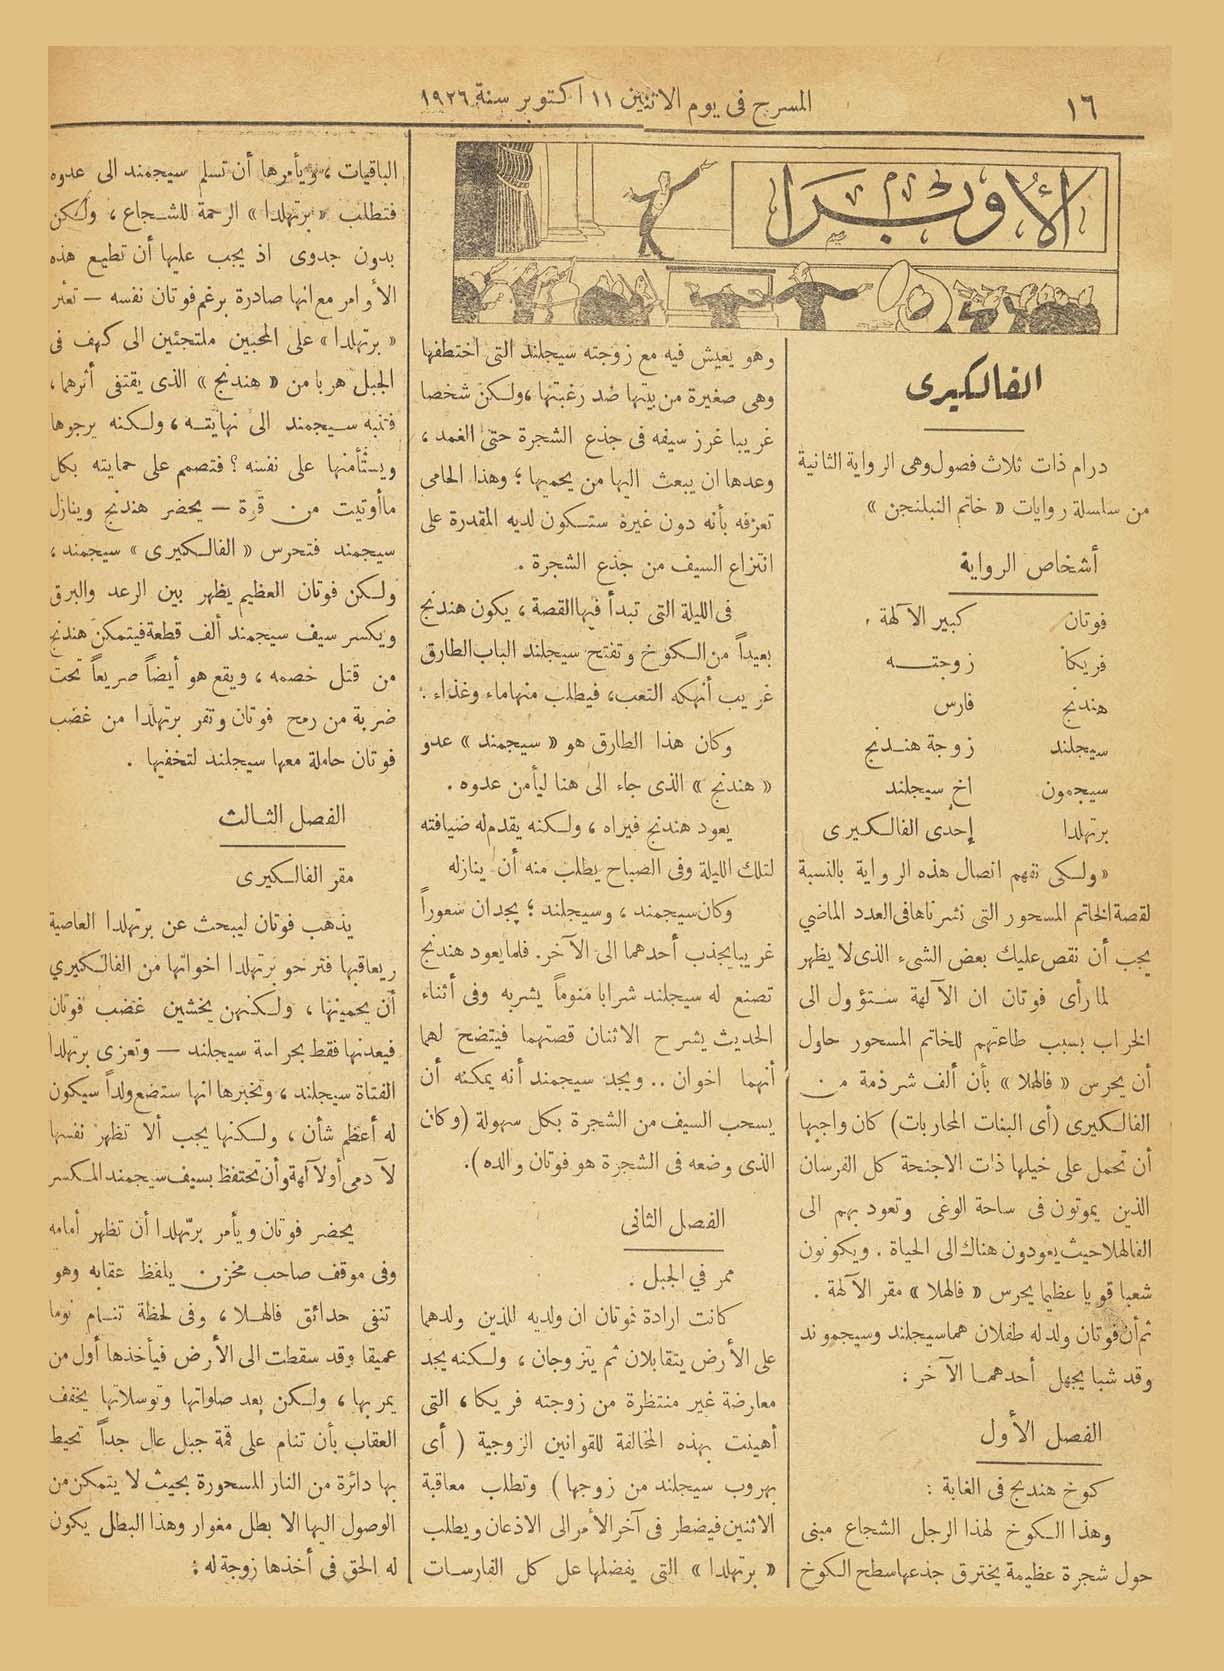 ١٦
المسرح فى يوم الاثنين ١١ اكتوبر سنة ١٩٢٦
الأوبرا
الفالكيرى
درام ذات ثلاث فصول وهى الرواية الثانية
من سلسلة روايات « خاتم النبلنجن »
أشخاص الرواية
فوتان كبير الآلهة .
فريكا زوجته
هندنج فارس
سيجلند زوجة هندنج
سيجمون اخ سيجلند
برتهلدا إحدى الفالكيرى
« ولكى تفهم اتصال هذه الرواية بالنسبة
لقصة الخاتم المسحور التى نشرناها فى العدد الماضي
يجب أن نقص عليك بعض الشىء الذى لا يظهر
لما رأى فوتان ان الآلهة ستؤول الى
الخراب بسبب طاعتهم للخاتم المسحور حاول
أن يحرس « فالهلا » بأن ألف شرذمة من
الفالكيرى (أى البنات المحاربات) كان واجبها
أن تحمل على خيلها ذات الاجنحة كل الفرسان
الذين يموتون فى ساحة الوغى وتعود بهم الى
الفالهلا حيث يعودون هناك الى الحياة . ويكونون
شعبا قويا عظيما يحرس « فالهلا » مقر الآلهة .
ثم أن فوتان ولد له طفلان هما سيجلند وسيجموند
وقد شبا يجهل أحدهما الآخر :
الفصل الأول
كوخ هندنج فى الغابة :
وهذا الكوخ لهذا الرجل الشجاع مبنى
حول شجرة عظيمة يخترق جدعها سطح الكوخ
وهو يعيش فيه مع زوجته سيجلند التى اختطفها
وهى صغيرة من بيتها ضد رغبتها ، ولكن شخصا
غريبا غرز سيفه فى جذع الشجرة حتى الغمد ،
وعدها ان يبعث اليها من يحميها ؛ وهذا الحامى
تعرفه بأنه دون غيره ستكون لديه المقدرة على
انتزاع السيف من جذع الشجرة .
فى الليلة التى تبدأ فيها القصة ، يكون هندنج
بعيداً من الكوخ وتفتح سيجلند الباب الطارق
غريب أنهكه التعب ، فيطلب منها ماء وغذاء :
وكان هذا الطارق هو « سيجمند » عدو
« هندنج » الذى جاء الى هنا ليأمن عدوه .
يعود هندنج فيراه ، ولكنه يقدم له ضيافته
لتلك الليلة وفى الصباح يطلب منه أن ينازله
وكان سيجمند ، وسيجلند ؛ يجدان شعوراً
غريبا يجذب أحدهما الى الآخر . فلما يعود هندنج
تصنع له سيجلند شرابا منوماً يشربه وفى أثناء
الحديث يشرح الاثنان قصتهما فيتضح لهما
أنهما اخوان .. ويجد سيجمند أنه يمكنه أن
يسحب السيف من الشجرة بكل سهولة (وكان
الذى وضعه فى الشجرة هو فوتان والده ).
الفصل الثانى
ممر في الجبل .
كانت ارادة فوتان ان ولديه للذين ولدهما
على الأرض يتقابلان ثم يتزوجان ، ولكنه يجد
معارضة غير منتظرة من زوجته فريكا ، التى
أهينت بهذه المخالفة للقوانين الزوجية ( أى
بهروب سيجلند من زوجها ) وتطلب معاقبة
الاثنين فيضطر فى آخر الأمر الى الاذعان ويطلب
« برتهلدا » التى يفضلها عل كل الفارسات
الباقيات ، ويأمرها أن تسلم سيجمند الى عدوه
فتطلب « برتهلدا » الرحمة للشجاع ، ولكن
بدون جدوى اذ يجب عليها أن تطيع هذه
الأوامر مع انها صادرة برغم فوتان نفسه — تعثر
« برتهلدا » على المحبين ملتجئين الى كهف فى
الجبل هربا من « هندنج » الذى يقتفى أثرهما ،
فتنبه سيجمند الى نهايته ، ولكنه يرجوها
ويستأمنها على نفسه ؟ فتصمم على حمايته بكل
ما أوتيت من قوة — يحضر هندنج وينازل
سيجمند فتحرس « الفالكيرى » سيجمند ،
ولكن فوتان العظيم يظهر بين الرعد والبرق
ويكسر سيف سيجمند ألف قطعة فيتمكن هندنج
من قتل خصمه ، ويقع هو أيضاً صريعاً تحت
ضربة من رمح فوتان وتفر برتهلدا من غضب
فوتان حاملة معها سيجلند لتخفيها .
الفصل الثالث
مقر الفالكيرى
يذهب فوتان ليبحث عن برتهلدا العاصية
ريعاقبها فترجو برتهلدا اخواتها من الفالكيري
أن يحمينها ، ولكنهن يخشين غضب فوتان
فيعدنها فقط بحراسة سيجلند — وتعزى برتهلدا
الفتاة سيجلند ، وتخبرها انها ستضع ولداً سيكون
له أعظم شأن ، ولكنها يجب ألا تظهر نفسها
لآدمى أو لآلهة وأن تحتفظ بسيف سيجمند المكسر
يحضر فوتان ويأمر برتهلدا أن تظهر أمامه
وفى موقف صاحب محزن يلفظ عقابه وهو
تنفى حدائق فالهلا ، وفى لحظة تنام نوما
عميقا وقد سقطت الى الأرض فيأخذها أول من
يمر بها ، ولكن بعد صلواتها وتوسلاتها يخفف
العقاب بأن تنام على قمة جبل عال جداً تحيط
بها دائرة من النار المسحورة بحيث لا يتمكن من
الوصول اليها الا بطل مغوار وهذا البطل يكون
له الحق فى أخذها زوجة له :